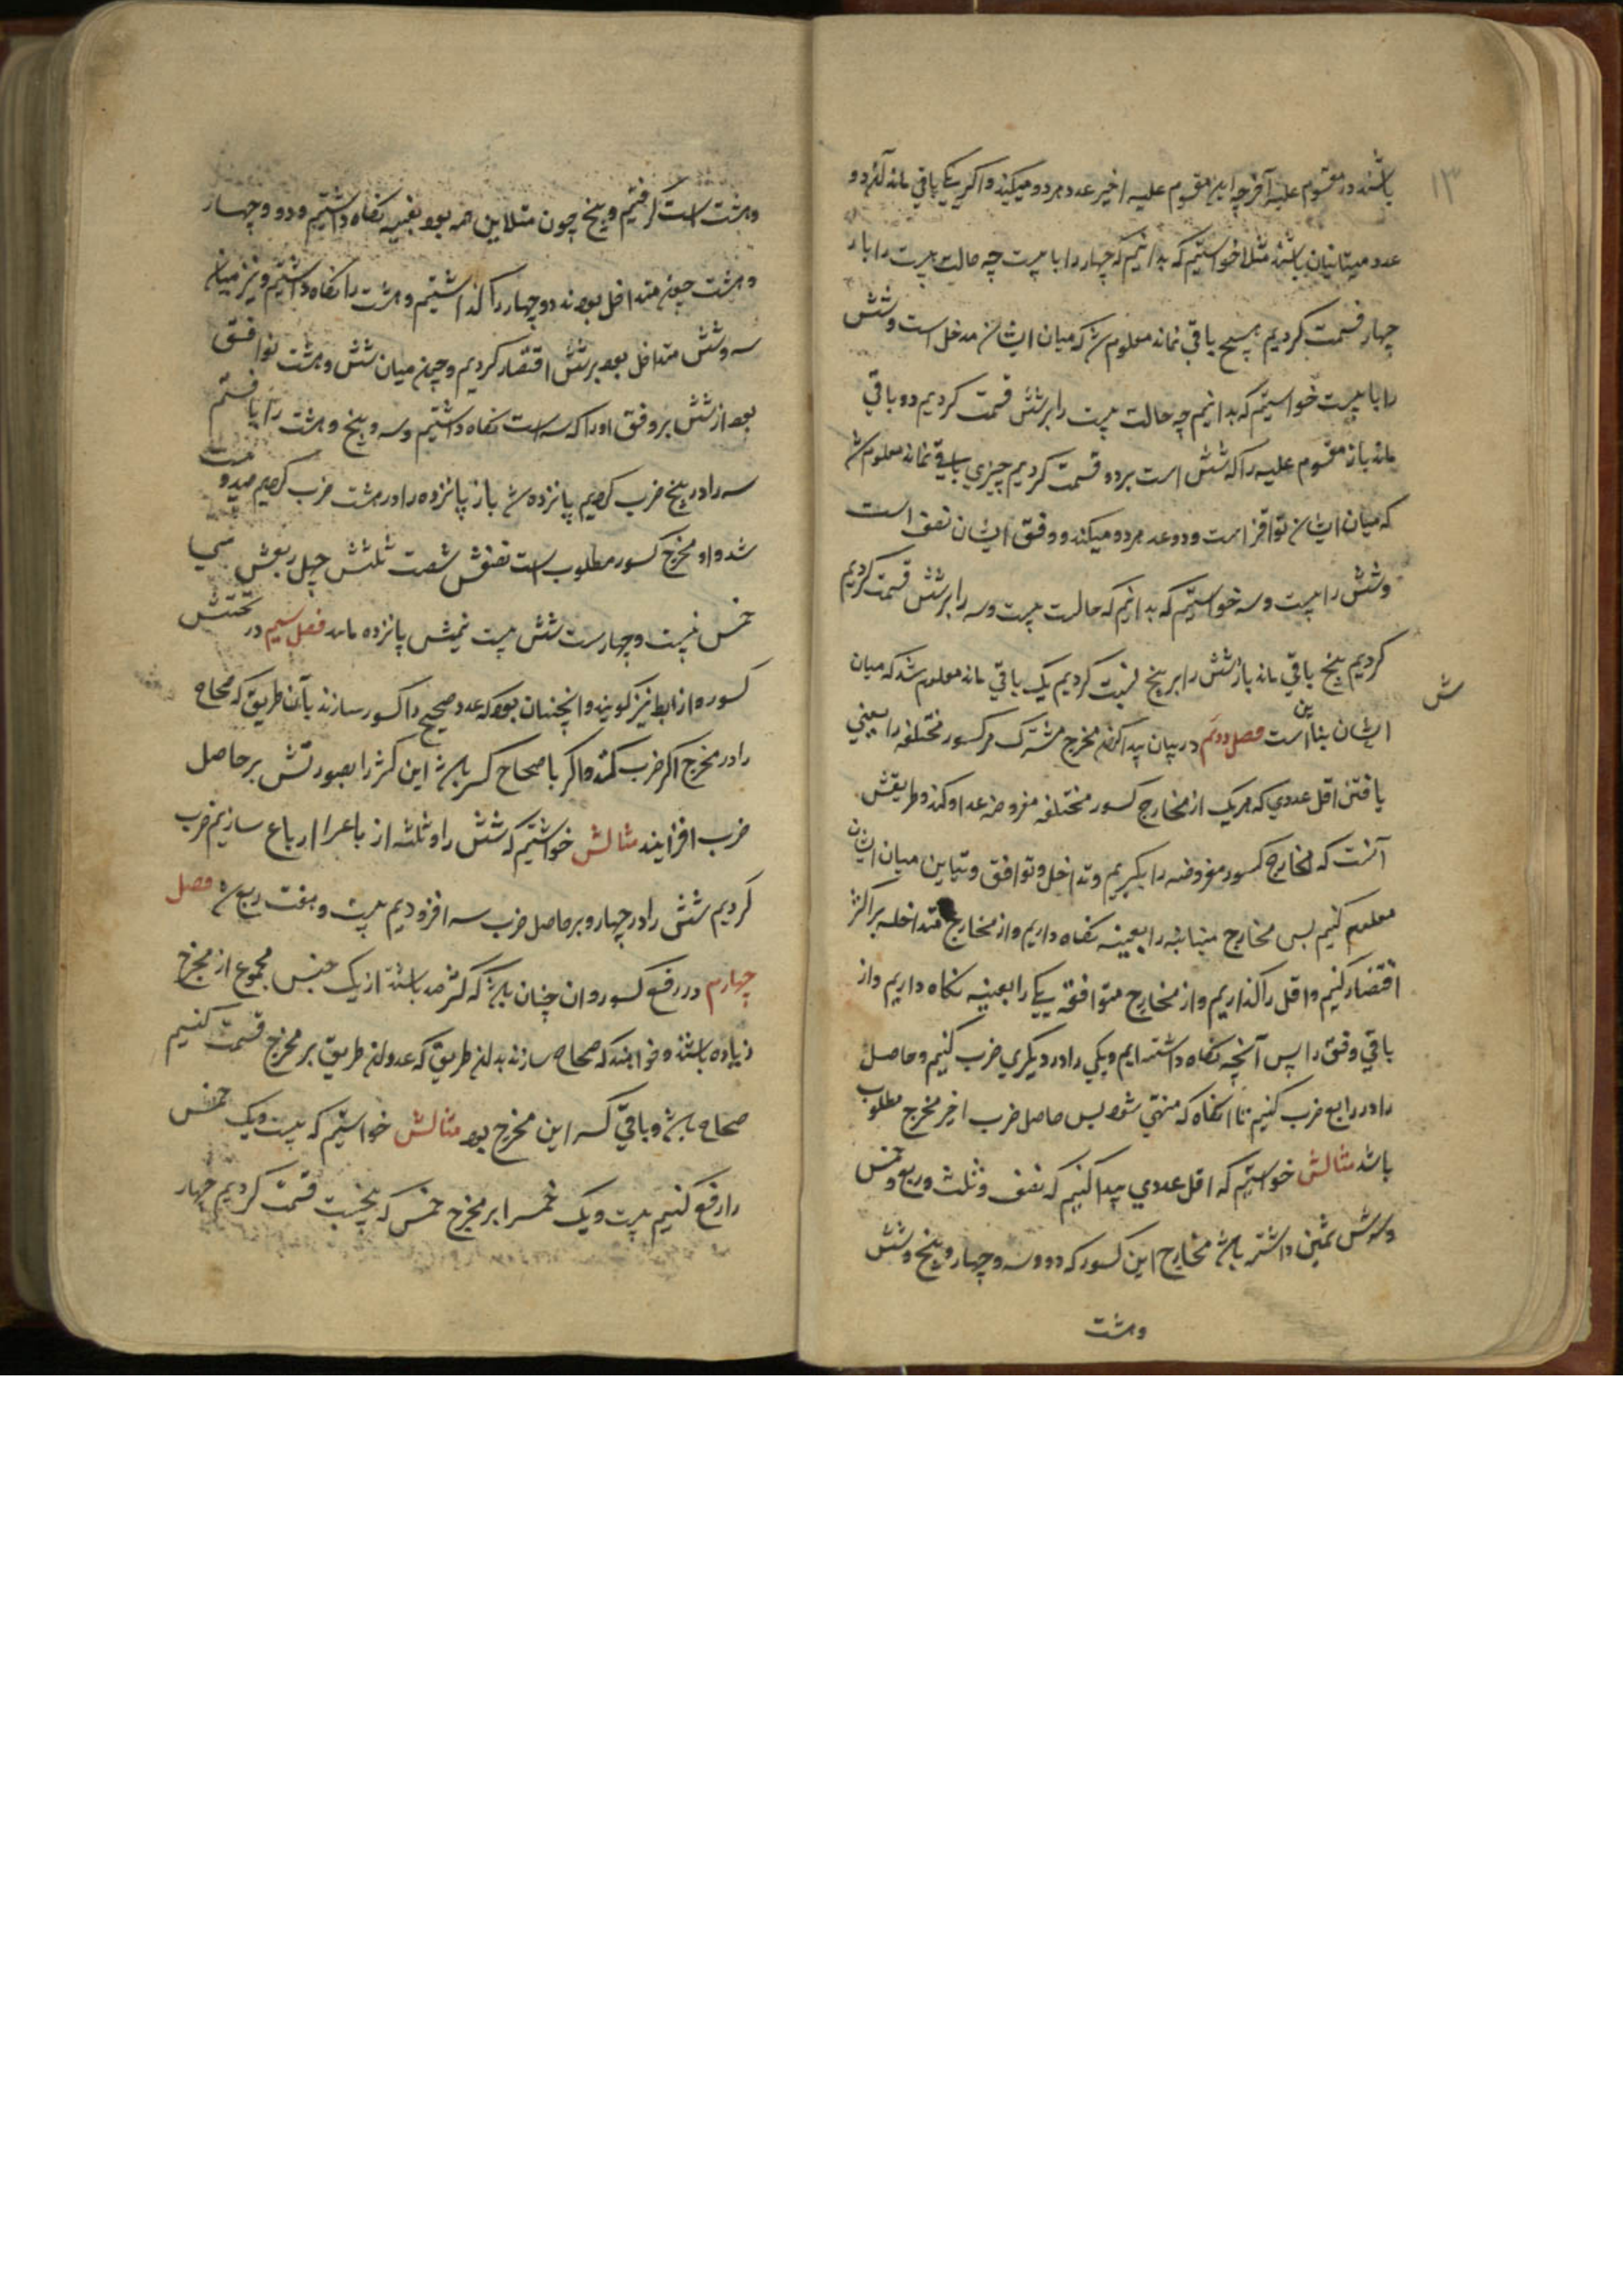 ۱۳
باشند در مقسوم علیه آخر چه این مقسوم علیه اخیر عدد هر دو میکند و اگر یکی باقی ماند آن دو
عدد متباینان باشند مثلا خواستیم که بدانیم که چهار را با بیست چه حالت بیست را بار
چهار قسمت کردیم هیچ باقی نماند معلوم شد که میان ایشان مدخل است و شش
را با بیست خواستیم که بدانیم چه حالت بیست را بر شش قسمت کردیم دو باقی
ماند باز مقسوم علیه را که شش است بر دو قسمت کردیم چیزی باقی نماند معلوم شد
که میان ایشان است و دو عدد هر دو میکند و وفق ایشان نصف است
و شش را بیست و سه خواستیم که بدانیم که حالت بیست و سه را بر شش قسمت کردیم
کردیم پنج باقی ماند باز شش را بر پنج قسمت کردیم یک باقی ماند معلوم شد که میان
ش
ایشان تباین است فصل دوم در بیان پیدا کردن مخرج مشترک مر کسور مختلفه را یعنی
یافتن اقل عددی که هر یک از مخارج کسور مختلفه مفروضه عد او کند و طریقش
آنست که مخارج کسور مفروضه را بگیریم و تداخل و توافق و تباین میان ایشان
معلوم کنیم بس مخارج متباینه را بعینه نگاه داریم و از مخارج متداخله بر اکثر
اقتصار کنیم و اقل را گذاریم و از مخارج متوافقه یکی را بعینه نگاه داریم و از
باقی وفق را پس آنچه نگاه داشته ایم و یکی را در دیگری ضرب کنیم و حاصل
را در رابع ضرب کنیم تا انگاه که منتهی شود بس حاصل ضرب اخیر مخرج مطلوب
باشد مثالش خواستیم که اقل عددی پیدا کنیم که نصف و ثلث و ربع و خمس
و سدس ثمین داشته باشد مخارج این کسور که دو و سه و چهار و پنج و شش
وهشت
وهشت است گرفتیم و پنج چون متباین همه بود بعینه نگاه داشتیم و دو و چهار
و هشت چون متداخل بودند دو چهار را گذاشتیم و هشت را نگاه داشتیم و نیز میان
سه و شش متداخل بود بر شش اقتصار کردیم و چون میان شش و هشت توافق
بود از شش بر وفق او را که سه است نگاه داشتیم و سه و پنج و هشت را یافتیم
سه را در پنج ضرب کردیم پانزده شد باز پانزده را در هشت ضرب کردیم صد و بیست
شد و او مخرج کسور مطلوب است نصفش شصت ثلثش چهل ربعش سی
خمس بیست و چهارست شش بیست ثمنش پانزده ماند فصل سیم در تجنیس
کسور و از ابط نیز گویند و آنچنان بود که عدد صحیح را کسور سازند بآن طریق که صحاح
را در مخرج اکر ضرب کنند و اکر با صحاح کسر باشد این کثر را بصورتش بر حاصل
ضرب افزایند مثالش خواستیم که شش را و ثلثه ارباع سازیم ضرب
کردیم شش را در چهار و بر حاصل ضرب سه افزودیم بیست و هفت ربع شد فصل
چهارم در رفع کسور و ان چنان باشد که کثر باشد از یک جنس مجموع از مخرج
زیاده باشند و خواهند که صحاح سازند بدان طریق که عدد آن طریق بر مخرج قسمت کنیم
صحاح باشد و باقی کسر این مخرج بود مثالش خواستیم که بیست و یک خمس
را رفع کنیم بیست و یک خمس را بر مخرج خمس که پنجست قسمت کردیم چهار